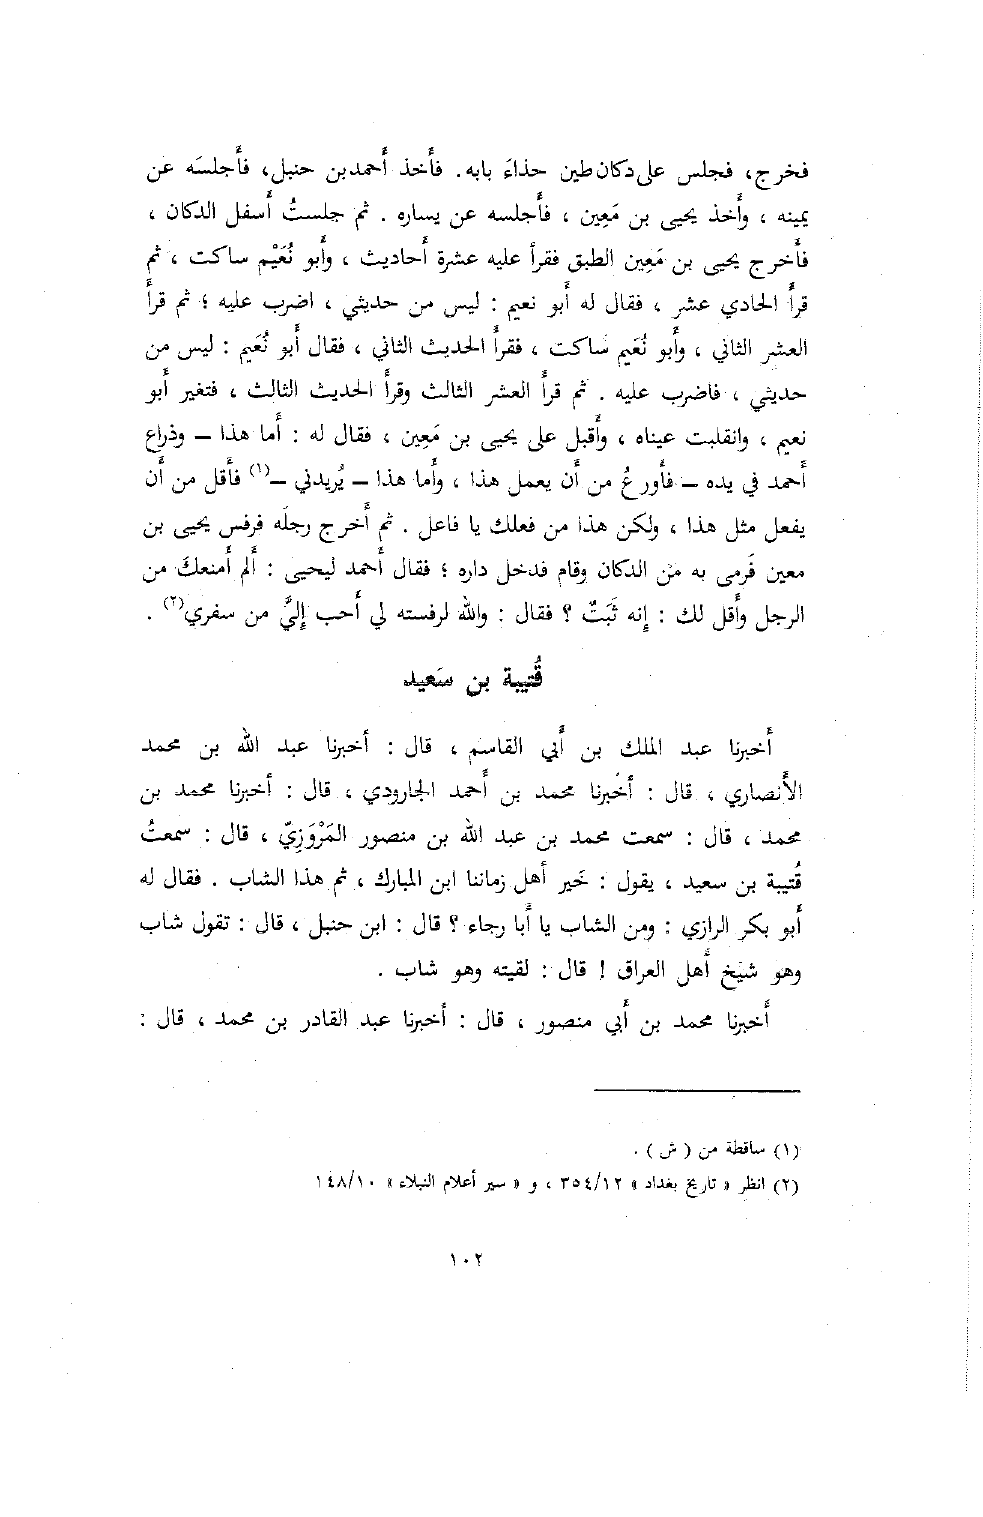 فخرج، فجلس على دكان طين حذاءَ بابه. فأَخذ أَحمد بن حنبل، فأَجلسَه عن
يمينه ، وأَخذ يحيى بن مَعِين ، فأَجلسه عن يساره . ثم جلستُ أَسفل الدكان ،
فأَخرج يحيى بن مَعِين الطبق فقرأَ عليه عشرة أَحاديث ، وأَبو نُعَيْم ساكت ، ثم
قرأَ الحادي عشر ، فقال له أَبو نعيم : ليس من حديثي ، اضرب عليه ؛ ثم قرأَ
العشر الثاني ، وأَبو نُعَيم ساكت ، فقرأَ الحديث الثاني ، فقال أَبو نُعَيم : ليس من
حديثي ، فاضرب عليه . ثم قرأَ العشر الثالث وقرأَ الحديث الثالث ، فتغير أَبو
نعيم ، وانقلبت عيناه ، وأَقبل على يحيى بن مَعِين ، فقال له : أَما هذا – وذراع
أَحمد في يده – فأَورعُ من أَن يعمل هذا ، وأَما هذا – يُريدني –(١) فأَقل من أَن
يفعل مثل هذا ، ولكن هذا من فعلك يا فاعل . ثم أَخرج رجلَه فرفس يحيى بن
معين فَرمى به من الدكان وقام فدخل داره ؛ فقال أَحمد ليحيى : أَلم أَمنعكَ من
الرجل وأَقل لك : إِنه ثَبَتٌ ؟ فقال : والله لرفسته لي أَحب إِليَّ من سفري(٢) .
قُتيبة بن سَعيد
أَخبرنا عبد الملك بن أَبي القاسم ، قال : أخبرنا عبد الله بن محمد
الأَنصاري ، قال : أخبرنا محمد بن أَحمد الجارودي ، قال : أخبرنا محمد بن
محمد ، قال : سمعت محمد بن عبد الله بن منصور المَرْوَزِيّ ، قال : سمعتُ
قُتيبة بن سعيد ، يقول : خَير أَهل زماننا ابن المبارك ، ثم هذا الشاب . فقال له
أَبو بكر الرازي : ومن الشاب يا أَبا رجاء ؟ قال : ابن حنبل ، قال : تقول شاب
وهو شيَخ أَهل العراق ! قال : لقيته وهو شاب .
أَخبرنا محمد بن أَبي منصور ، قال : أخبرنا عبد القادر بن محمد ، قال :
(١) ساقطة من ( ش ) .
(٢) انظر « تاريخ بغداد » ٣٥٤/١٢ ، و « سير أعلام النبلاء » ١٤٨/١٠
١٠٢